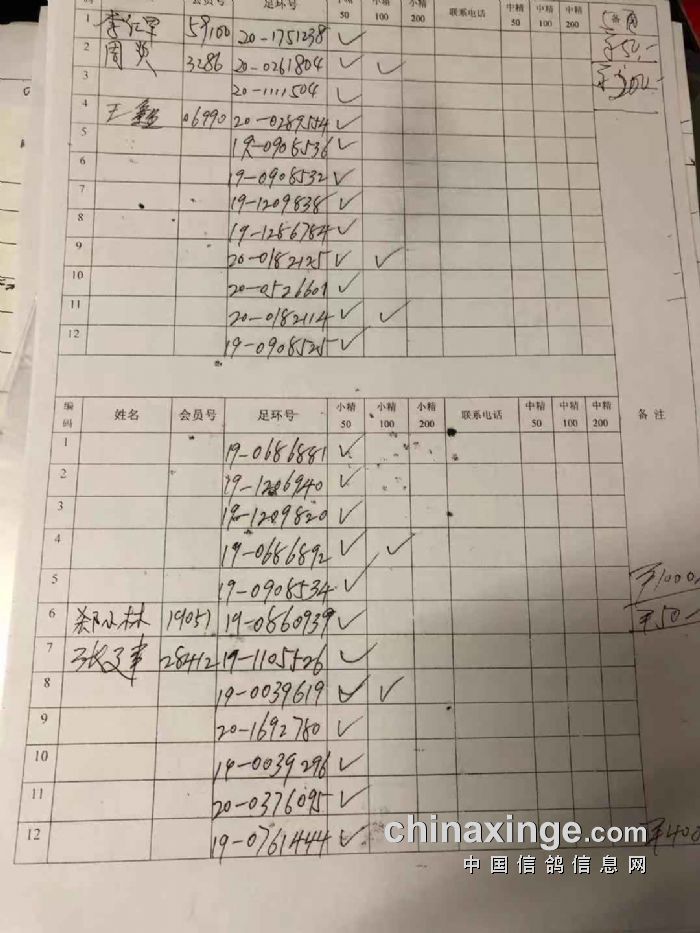 码 会员号 足环号 小精 50 小精 100 小精 200 联系电话 中精 50 中精 100 中精 200 备
1 59100 20-1751238 ✓ 50.-
2 周 3286 20-0261804 ✓ ✓
3 20-1111504 ✓ 200.-
4 王鑫 06990 20-0289554 ✓
5 19-0908536 ✓
6 19-0908532 ✓
7 19-1209838 ✓
8 19-1286784 ✓
9 20-0182125 ✓ ✓
10 20-0526601 ✓
11 20-0182114 ✓ ✓
12 19-0908525 ✓
编码 姓名 会员号 足环号 小精 50 小精 100 小精 200 联系电话 中精 50 中精 100 中精 200 备注
1 19-0686881 ✓
2 19-1206940 ✓
3 19-1209820 ✓
4 19-0686892 ✓ ✓
5 19-0908534 ✓ ¥1000.-
6 郑小林 19051 19-0860939 ✓ ¥50.-
7 28412 19-1105526 ✓
8 19-0039619 ✓ ✓
9 20-1692780 ✓
10 19-0039296 ✓
11 20-0376095 ✓
12 19-0761444 ✓ ¥400
chinaxinge.com
中国信鸽信息网